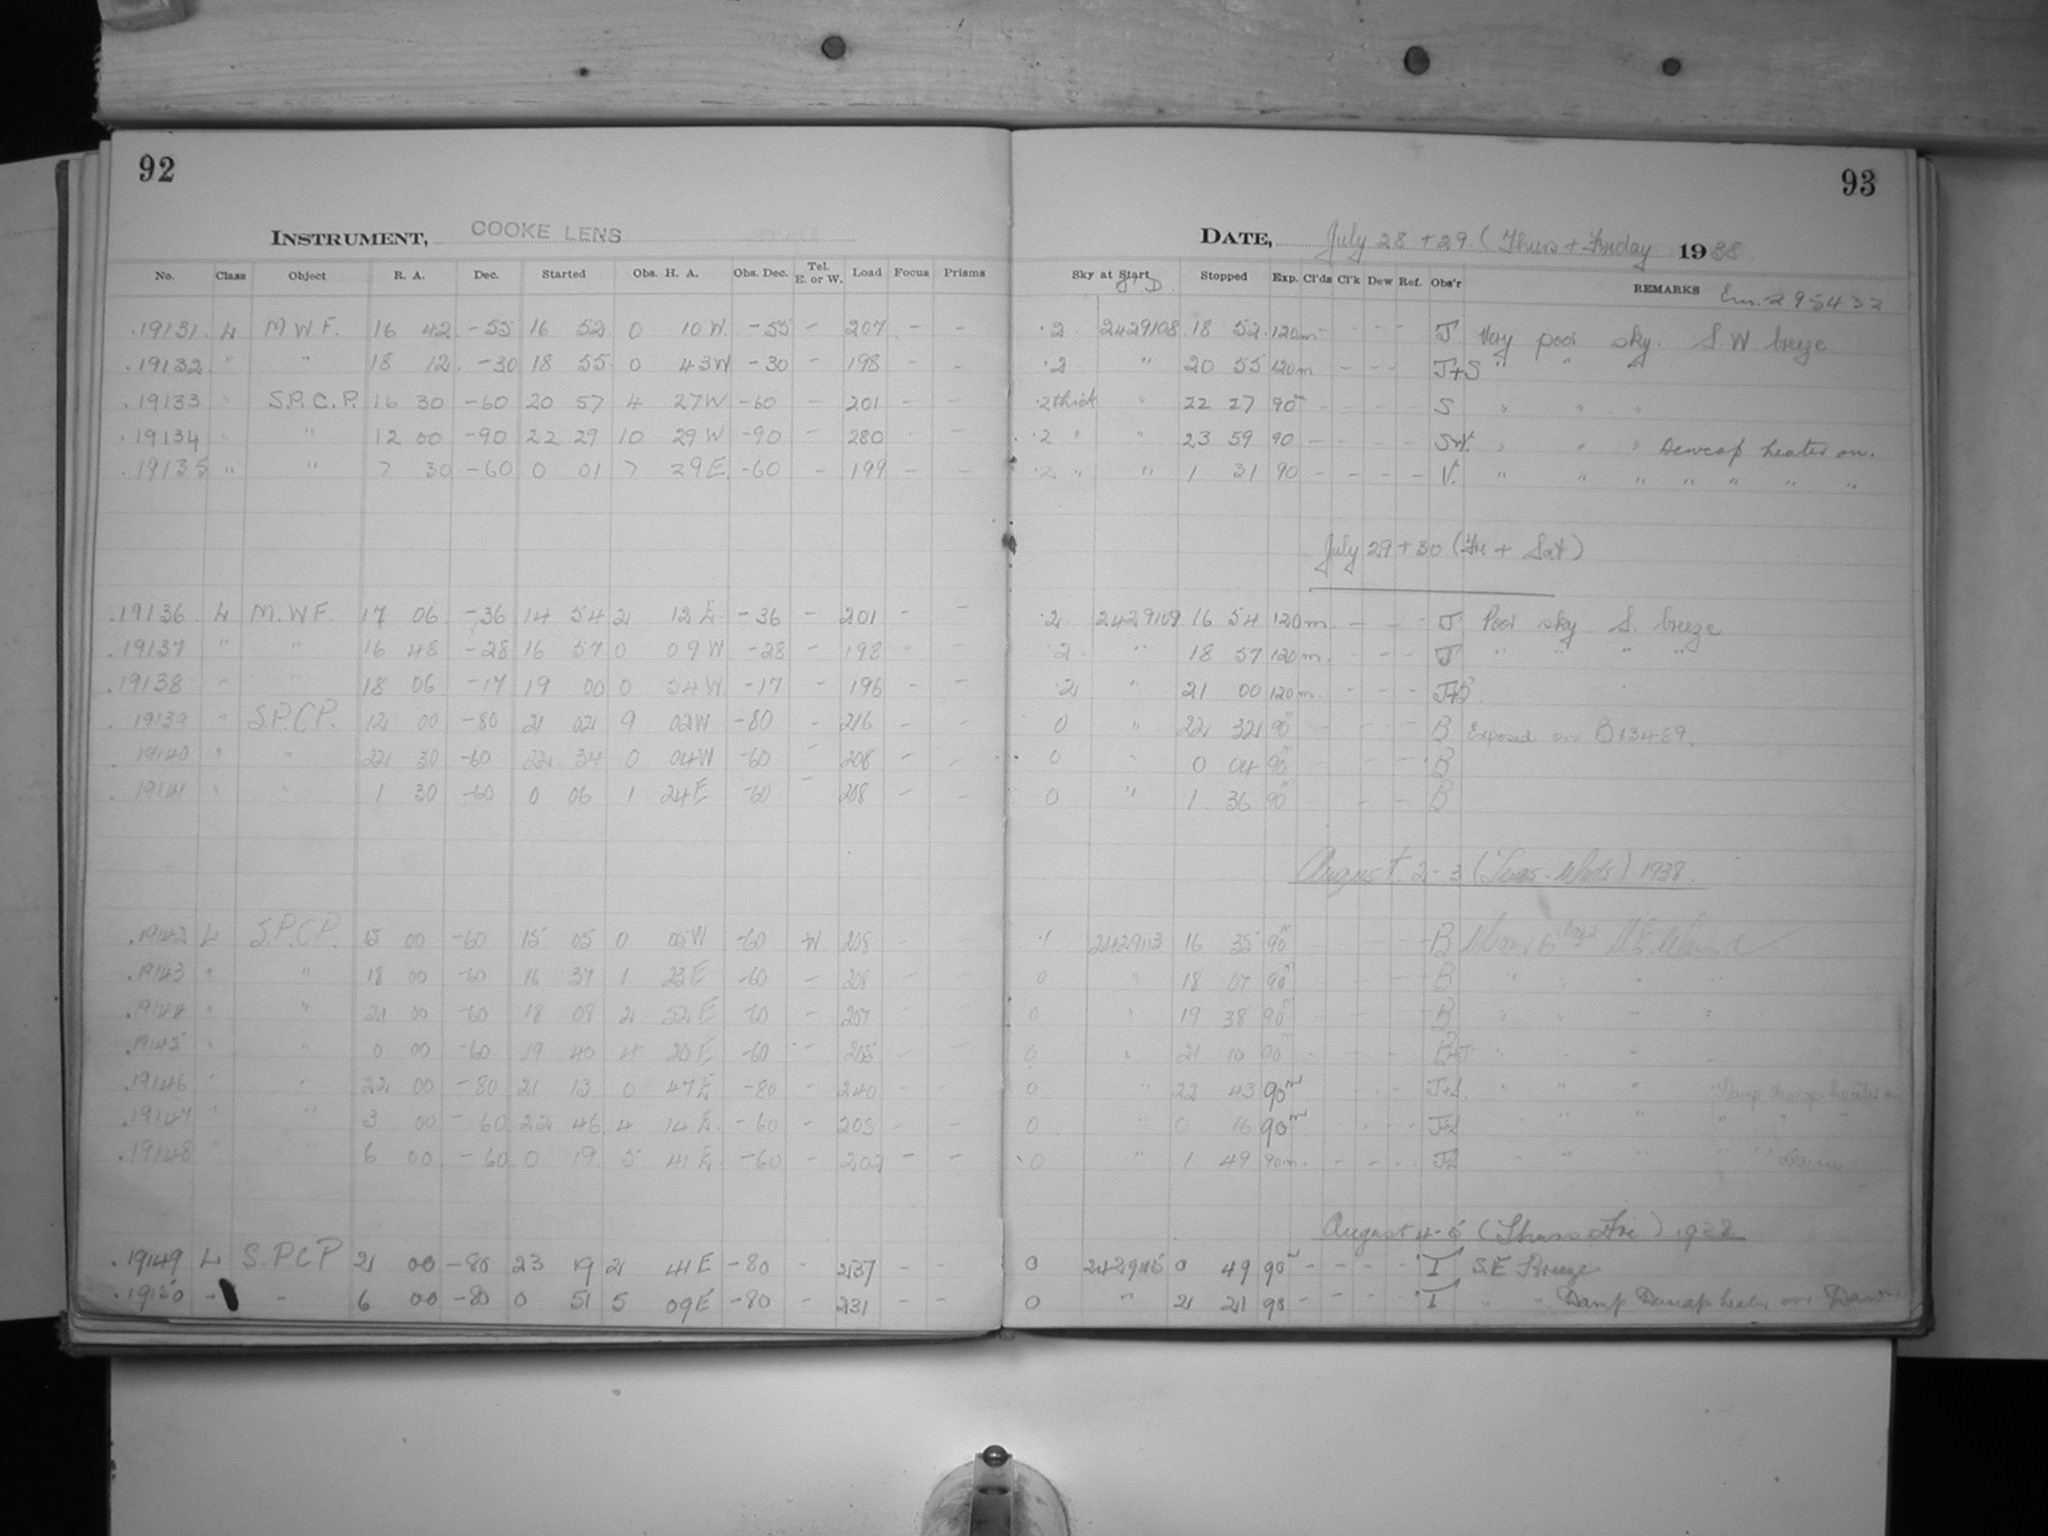 92
INSTRUMENT, COOKE LENS
No. Class Object R. A. Dec. Started Obs. H. A. Obs. Dec. Tel. E. or W. Load Focus Prisms
19131 L M.W.F. 16 42 -55 16 52 0 10 W -55 - 207 - -
19132 " " 18 12 -30 18 55 0 43 W -30 - 198 - -
19133 " S.P.C.P. 16 30 -60 20 57 4 27 W -60 - 201 - -
19134 " " 12 00 -90 22 29 10 29 W -90 - 280 - -
19135 " " 7 30 -60 0 01 7 29 E -60 - 199 - -
19136 L M.W.F. 17 06 -36 14 54 2 12 E -36 - 201 - -
19137 " " 16 48 -28 16 57 0 09 W -28 - 198 - -
19138 " " 18 06 -17 19 00 0 54 W -17 - 196 - -
19139 " S.P.C.P. 12 00 -80 21 02 9 02 W -80 - 216 - -
19140 " " 22 30 -60 22 34 0 04 W -60 - 208 - -
19141 " " 1 30 -60 0 06 1 24 E -60 - 208 - -
19142 L S.P.C.P. 15 00 -60 15 05 0 05 W -60 W 208 - -
19143 " " 18 00 -60 16 37 1 23 E -60 - 208 - -
19144 " " 21 00 -60 18 08 2 52 E -60 - 207 - -
19145 " " 0 00 -60 19 40 4 20 E -60 - 205 - -
19146 " " 22 00 -80 21 13 0 47 E -80 - 240 - -
19147 " " 3 00 -60 22 46 4 14 E -60 - 205 - -
19148 " " 6 00 -60 0 19 5 41 E -60 - 202 - -
19149 L S.P.C.P 2 00 -80 23 19 2 41 E -80 - 237 - -
19150 " " 6 00 -80 0 51 5 09 E -80 - 231 - -
93
DATE, July 28 + 29 (Thurs + Friday 1938
Sky at Start J.D. Stopped Exp. Cl'ds Cl'k Dew Ref. Obs'r REMARKS Em. 295432
.2 2429108 18 52 120m - - - - J Very poor sky. S.W. breeze
.2 " 20 55 120m - - - J+S " " "
.2 thick " 22 27 90m - - - - S " " "
.2 " " 23 59 90 - - - - " " " Dewcap heater on.
.2 " " 1 31 90 - - - - V. " " " " " " "
July 29 + 30 (Fri + Sat)
.2 2429109 16 54 120m - - - J Poor sky S. breeze
.2 " 18 57 120m - - - J " " " "
.2 " 21 00 120m - - - J+B
0 " 22 32 90m - - - - B Exposed on B
0 " 0 04 90m - - - - B
0 " 1 36 90m - - - - B
August 2-3 (Tues-Weds) 1938.
.1 2429113 16 35 90m - - - - B N.E. Wind
0 " 18 07 90m - - - - B " " " "
0 " 19 38 90m - - - - B " " " "
0 " 21 10 90m - - - - B+J " " " "
0 " 22 43 90m - - - J+S. " " " Damp Dewcap heater on
0 " 0 16 90m - - - " " " " " "
0 " 1 49 90m - - - - " " " " " Dawn
August 4-5 (Thurs-Fri) 1938
0 2429115 0 49 90m - - - - I S.E Breeze
0 " 2 21 90 - - - - I " " Damp Dewcap heater on Dawn